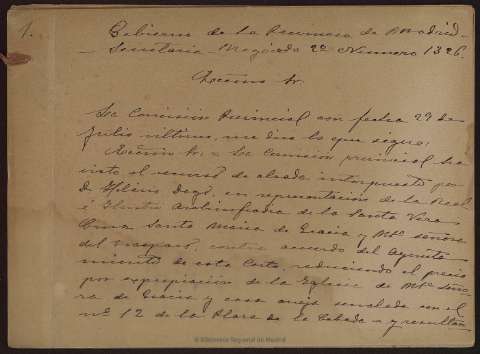 1.
Gobierno de la Provincia de Madrid
Secretaría Negociado 2º Número 1326.
Excmo Sr.
La Comisión Provincial con fecha 29 de
Julio último, me dice lo que sigue:
Excmo Sr. = La Comisión provincial ha
visto el recurso de alzada interpuesto por
D. en representación de la Real
é Ilustre Archicofradía de la Santa Vera
Cruz Santa María de Gracia y Ntra Señora
del Traspaso, contra acuerdo del Ayunta-
miento de esta Corte, reduciendo el precio
por expropiación de la Iglesia de Ntra Seño-
ra de Gracia y casa aneja señalada con el
nº 12 de la Plaza de la Cebada = y resultan
© Biblioteca Regional de Madrid